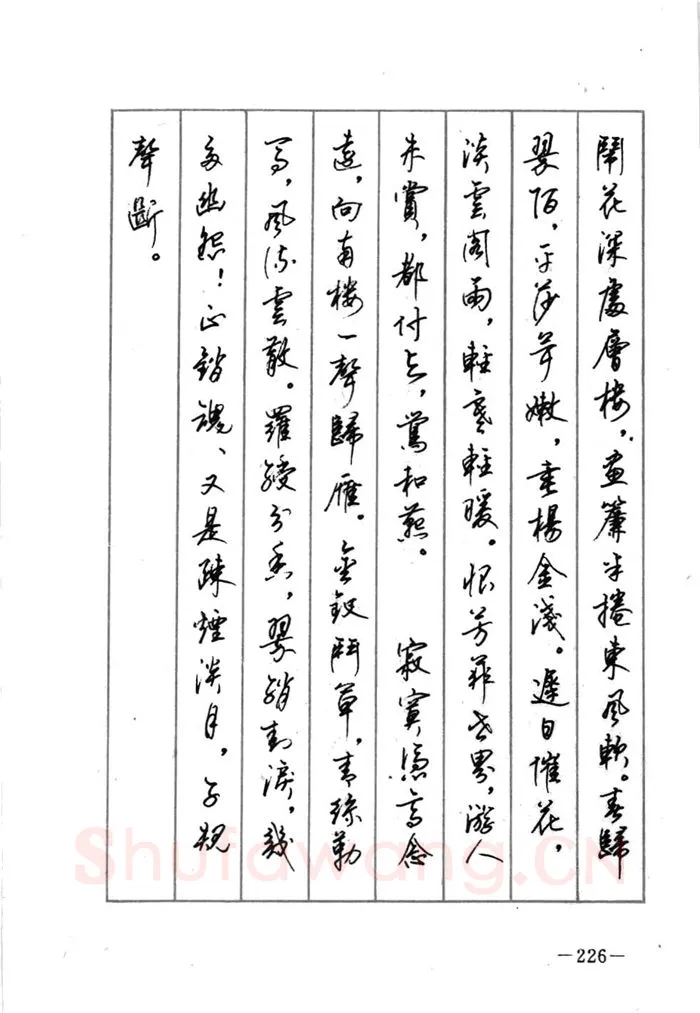 鬧花深處層樓，畫簾半捲東風軟。春歸
翠陌，平莎茸嫩，垂楊金淺。遲日催花，
淡雲閣雨，輕寒輕暖。恨芳菲世界，遊人
未賞，都付與，鶯和燕。 寂寞憑高念
遠，向南樓一聲歸雁。金釵鬥草，青絲勒
馬，風流雲散。羅綬分香，翠綃封淚，幾
多幽怨！正銷魂、又是疎煙淡月，子規
聲斷。
Shufawang.CN
—226—